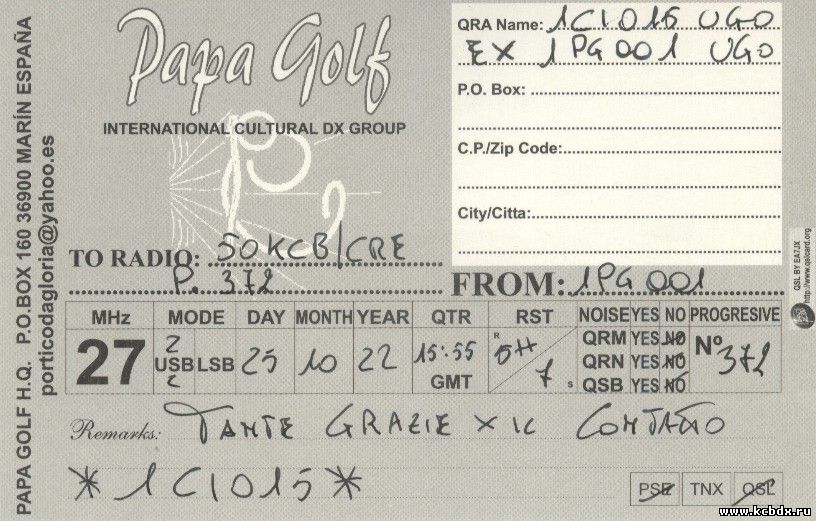 PAPA GOLF H.Q. P.O.BOX 160 36900 MARÍN ESPAÑA
porticodagloria@yahoo.es
Papa Golf
INTERNATIONAL CULTURAL DX GROUP
QRA Name: 1CI015 UGO
EX 1PG001 UGO
P.O. Box:
C.P./Zip Code:
City/Citta:
TO RADIO: 50KCB/CRE
P. 372
FROM: 1PG001
MHz MODE DAY MONTH YEAR QTR RST NOISE YES NO PROGRESIVE
27 USB LSB 25 10 22 15:55 GMT R 5 7 S
QRM YES NO
QRN YES NO
QSB YES NO
Nº 372
Remarks: TANTE GRAZIE X IL CONTATTO
*1CI015*
PSE TNX QSL
QSL BY EA7JX
http://www.qslcard.org
www.kcbdx.ru